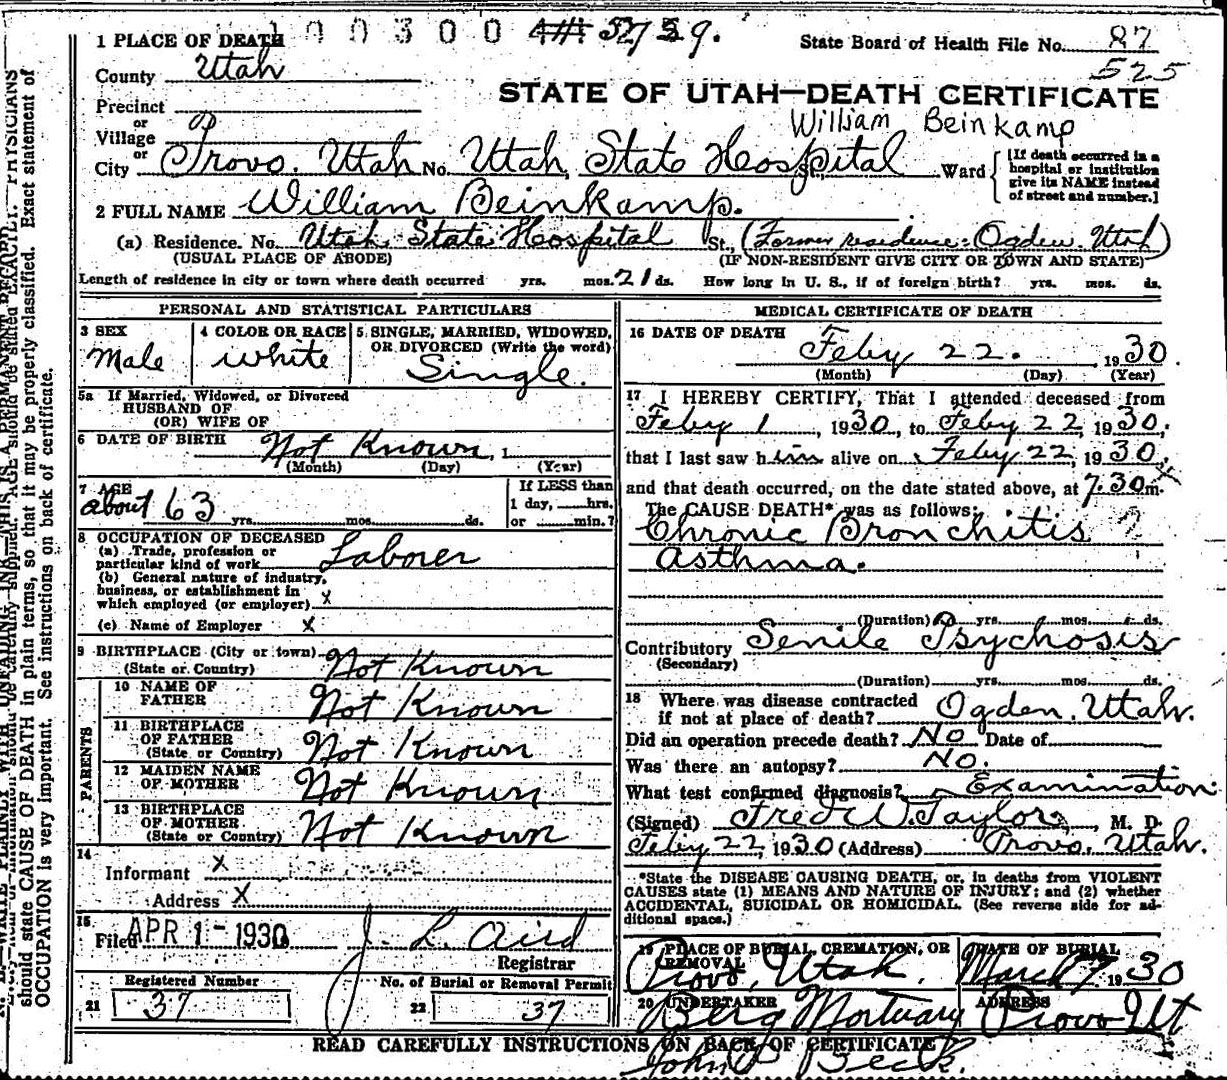 100300 3739.
1 PLACE OF DEATH
State Board of Health File No. 87
525
County Utah
STATE OF UTAH—DEATH CERTIFICATE
Precinct
or
Village
William Beinkamp
City or Provo. Utah No. Utah State Hospital St., Ward
[If death occurred in a
hospital or institution
give its NAME instead
of street and number.]
2 FULL NAME William Beinkamp.
(a) Residence. No. Utah State Hospital St., (Former residence: Ogden, Utah)
(USUAL PLACE OF ABODE) (IF NON-RESIDENT GIVE CITY OR TOWN AND STATE)
Length of residence in city or town where death occurred yrs. mos. 21 ds. How long in U. S., if of foreign birth? yrs. mos. ds.
PERSONAL AND STATISTICAL PARTICULARS
3 SEX
Male
4 COLOR OR RACE
white
5 SINGLE, MARRIED, WIDOWED,
OR DIVORCED (Write the word)
Single.
5a If Married, Widowed, or Divorced
HUSBAND OF
(OR) WIFE OF
6 DATE OF BIRTH Not Known, 1
(Month) (Day) (Year)
7 AGE
about 63 yrs. mos. ds.
If LESS than
1 day, hrs.
or min.?
8 OCCUPATION OF DECEASED
(a) Trade, profession or
particular kind of work Laborer
(b) General nature of industry,
business, or establishment in
which employed (or employer) X
(c) Name of Employer X
9 BIRTHPLACE (City or town)
(State or Country) Not Known
PARENTS
10 NAME OF
FATHER Not Known
11 BIRTHPLACE
OF FATHER
(State or Country) Not Known
12 MAIDEN NAME
OF MOTHER Not Known
13 BIRTHPLACE
OF MOTHER
(State or Country) Not Known
14
Informant X
Address X
15
Filed APR 1-1930 J. L. Aird
Registrar
Registered Number
21 37
No. of Burial or Removal Permit
22 37
MEDICAL CERTIFICATE OF DEATH
16 DATE OF DEATH
Feby 22. 1930.
(Month) (Day) (Year)
17 I HEREBY CERTIFY, That I attended deceased from
Feby 1, 1930, to Feby 22, 1930,
that I last saw him alive on Feby 22, 1930,
and that death occurred, on the date stated above, at 7.30 m.
The CAUSE DEATH* was as follows:
Chronic Bronchitis
Asthma.
(Duration) yrs. mos. ds.
Contributory Senile Psychosis
(Secondary)
(Duration) yrs. mos. ds.
18 Where was disease contracted
if not at place of death? Ogden, Utah.
Did an operation precede death? No Date of
Was there an autopsy? No.
What test confirmed diagnosis? Examination
(Signed) Fred W. Taylor, M. D.
Feby 22, 1930 (Address) Provo, Utah.
*State the DISEASE CAUSING DEATH, or, in deaths from VIOLENT
CAUSES state (1) MEANS AND NATURE OF INJURY; and (2) whether
ACCIDENTAL, SUICIDAL OR HOMICIDAL. (See reverse side for ad-
ditional space.)
19 PLACE OF BURIAL, CREMATION, OR
REMOVAL
Provo, Utah.
DATE OF BURIAL
March 7 1930
20 UNDERTAKER
Berg Mortuary
ADDRESS
Provo Ut
READ CAREFULLY INSTRUCTIONS ON BACK OF CERTIFICATE
John P Beck.
should state CAUSE OF DEATH in plain terms, so that it may be properly classified. Exact statement of
OCCUPATION is very important. See instructions on back of certificate.